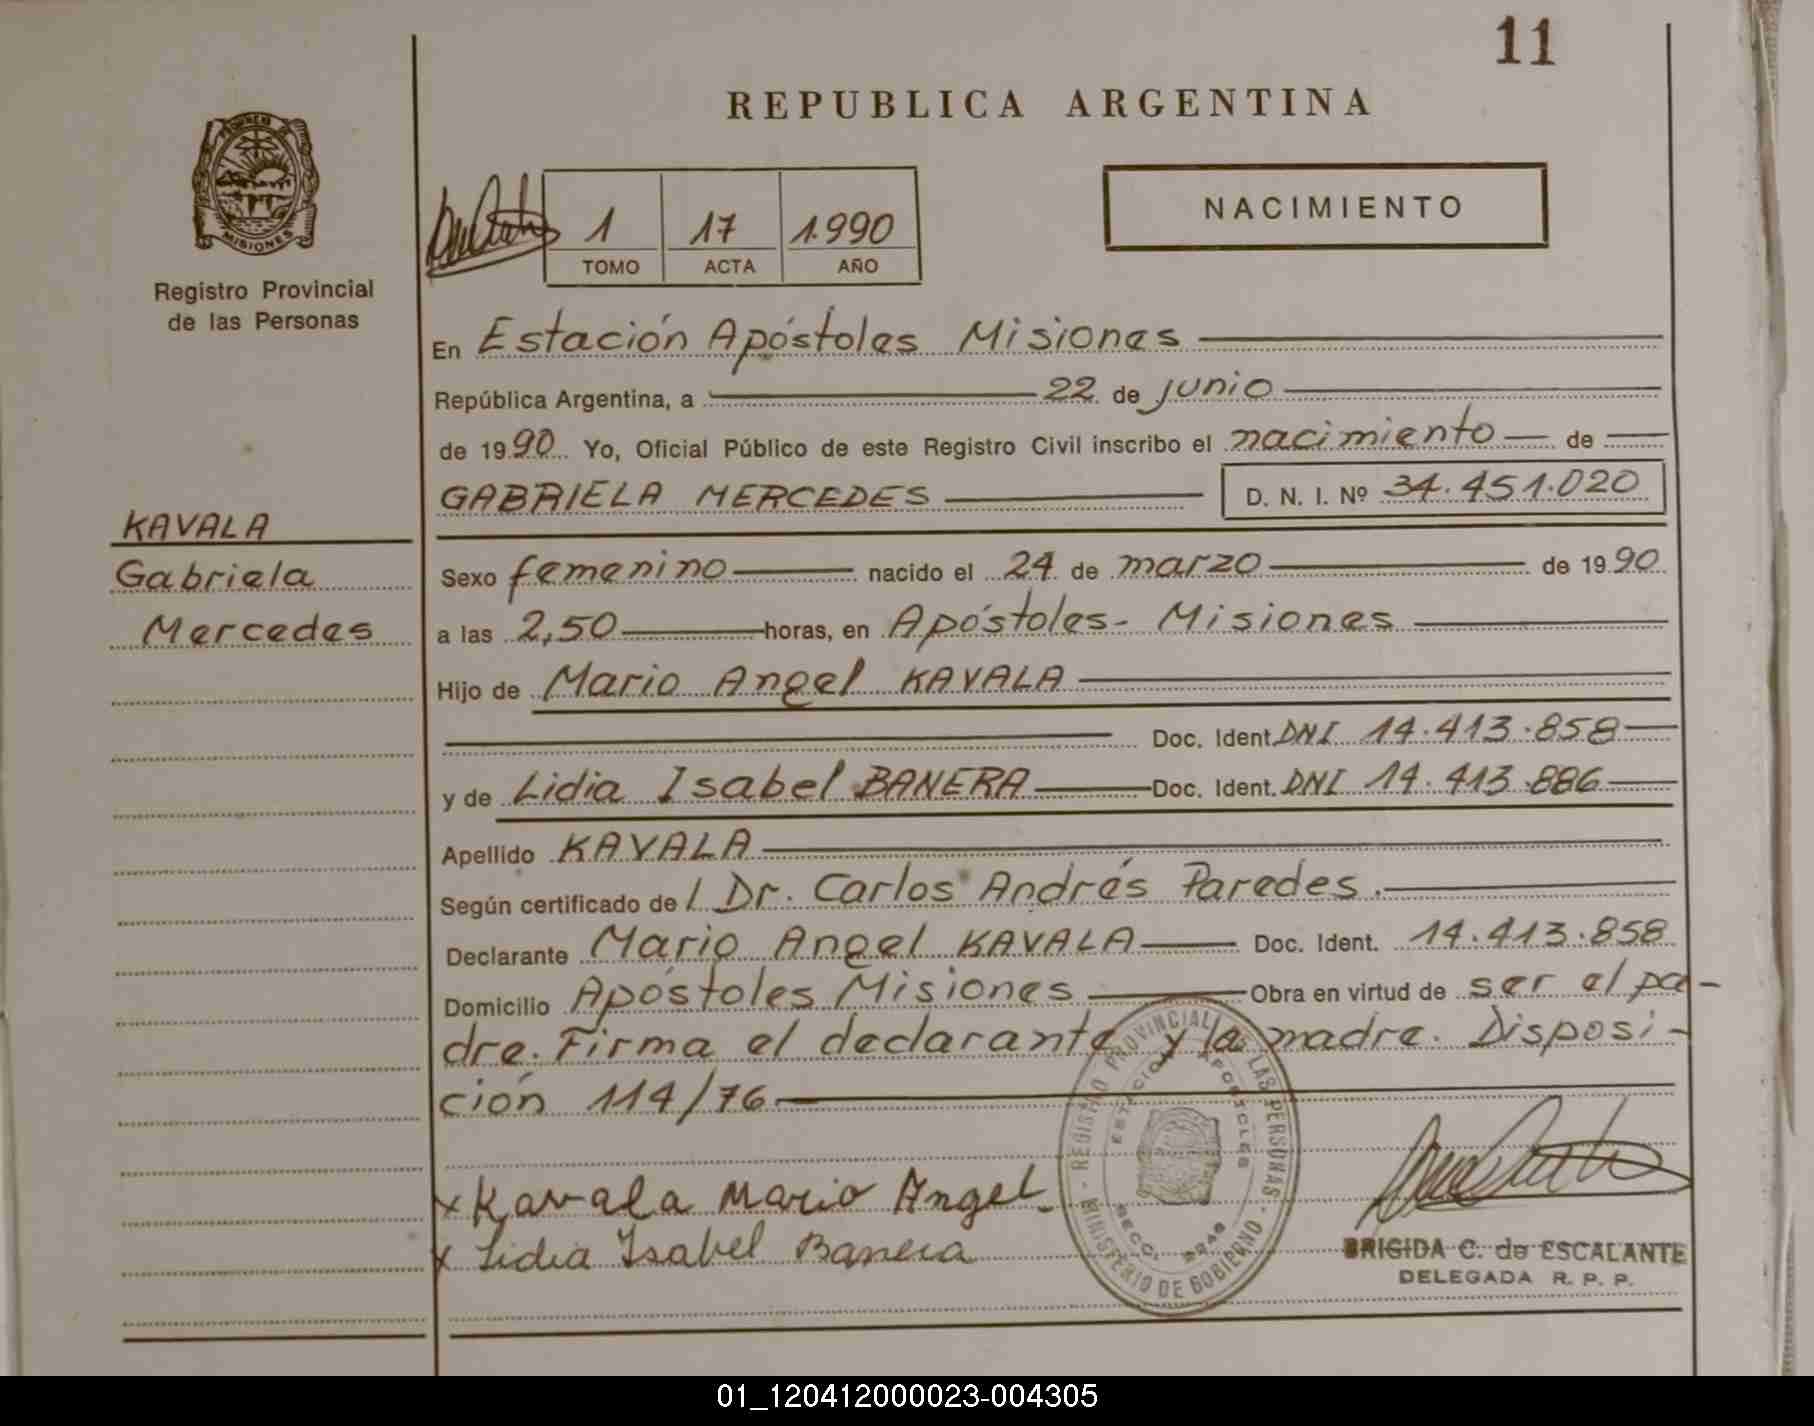 11
REPUBLICA ARGENTINA
PROVINCIA DE
MISIONES
Registro Provincial
de las Personas
1 17 1.990
TOMO ACTA AÑO
NACIMIENTO
En Estación Apóstoles Misiones
República Argentina, a 22 de junio
de 1990 Yo, Oficial Público de este Registro Civil inscribo el nacimiento de
GABRIELA MERCEDES D. N. I. Nº 34.451.020
KAVALA
Gabriela
Mercedes
Sexo femenino nacido el 24 de marzo de 1990
a las 2,50 horas, en Apóstoles- Misiones
Hijo de Mario Angel KAVALA
Doc. Ident. DNI 14.413.858
y de Lidia Isabel BANERA Doc. Ident. DNI 14.413.886
Apellido KAVALA
Según certificado de / Dr. Carlos Andrés Paredes.
Declarante Mario Angel KAVALA Doc. Ident. 14.413.858
Domicilio Apóstoles Misiones Obra en virtud de ser el pa-
dre. Firma el declarante y la madre. Disposi-
ción 114/76
REGISTRO PROVINCIAL DE LAS PERSONAS
MINISTERIO DE GOBIERNO
ESTACION APOSTOLES
x Kavala Mario Angel
x Lidia Isabel Banera
BRIGIDA C. de ESCALANTE
DELEGADA R. P. P.
01_120412000023-004305